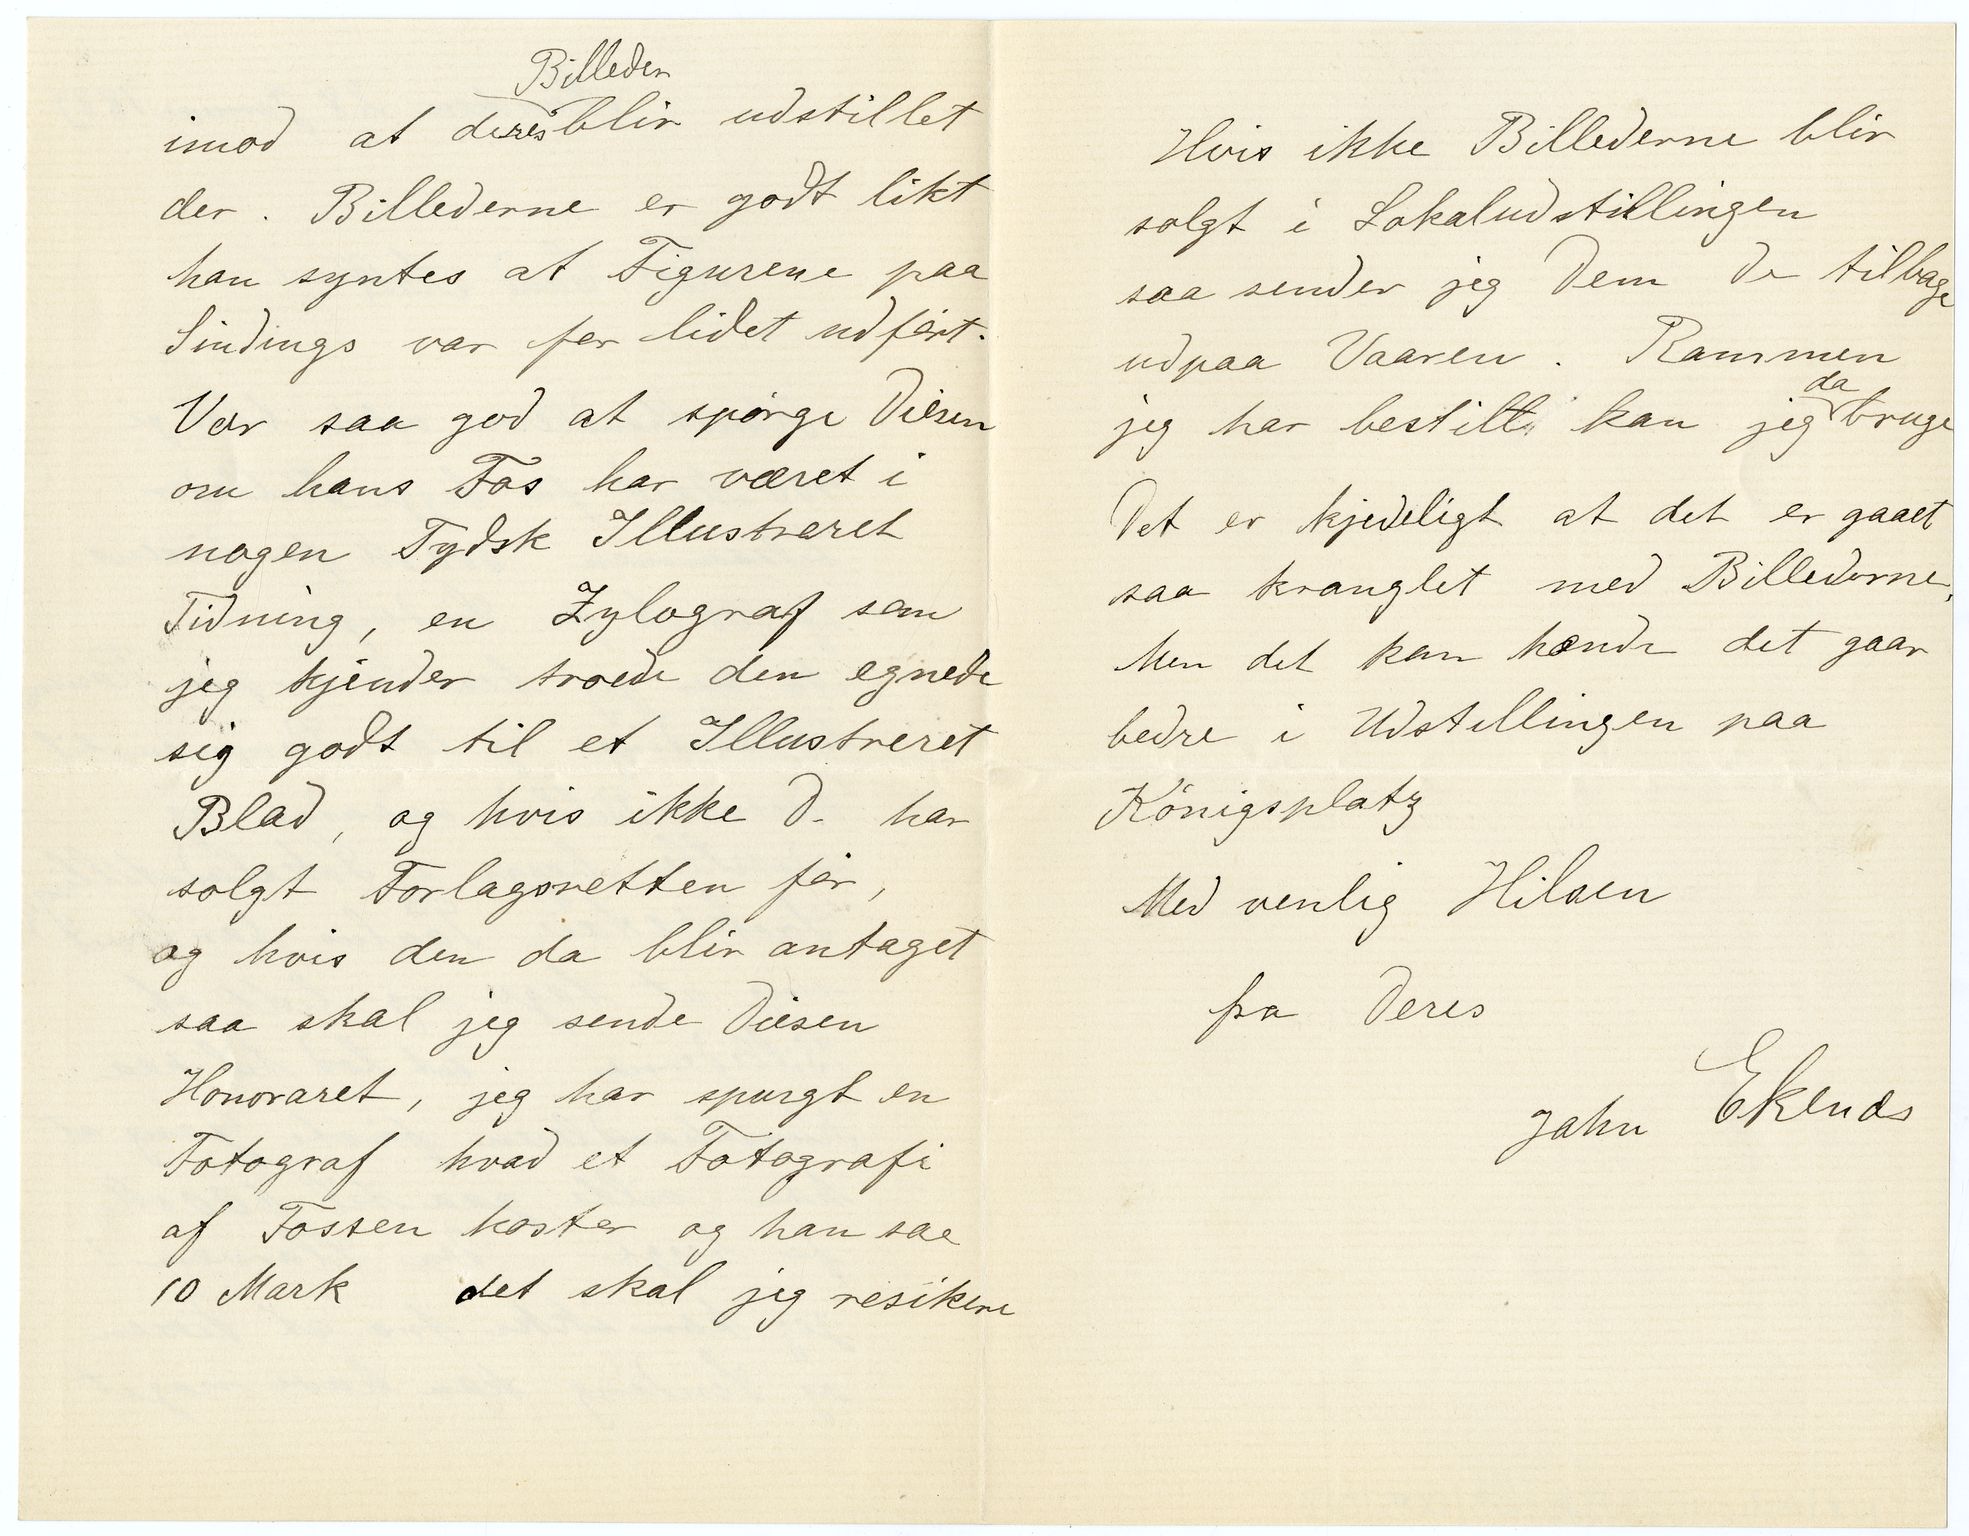 Billeder
imod at deres blir udstillet
der. Billederne er godt likt
han syntes at Figurene paa
Sindings var før lidet udført.
Vær saa god at spørge Diesen
om hans Fos har været i
nogen Tydsk Illustreret
Tidning, en Zylograf som
jeg kjender troede den egnede
sig godt til et Illustreret
Blad, og hvis ikke D. har
solgt Forlagsretten før,
og hvis den da blir antaget
saa skal jeg sende Diesen
Honoraret, jeg har spurgt en
Fotograf hvad et Fotografi
af Fossen koster og han sae
10 Mark det skal jeg resikere
Hvis ikke Billederne blir
solgt i Lokaludstillingen
saa sender jeg Dem De tilbage
udpaa Vaaren. Rammen
da
jeg har bestilt kan jeg bruge
Det er kjedeligt at det er gaaet
saa kranglet med Billederne,
Men det kan hænde det gaar
bedre i Udstillingen paa
Königsplatz
Med venlig Hilsen
fra Deres
John Ekenæs